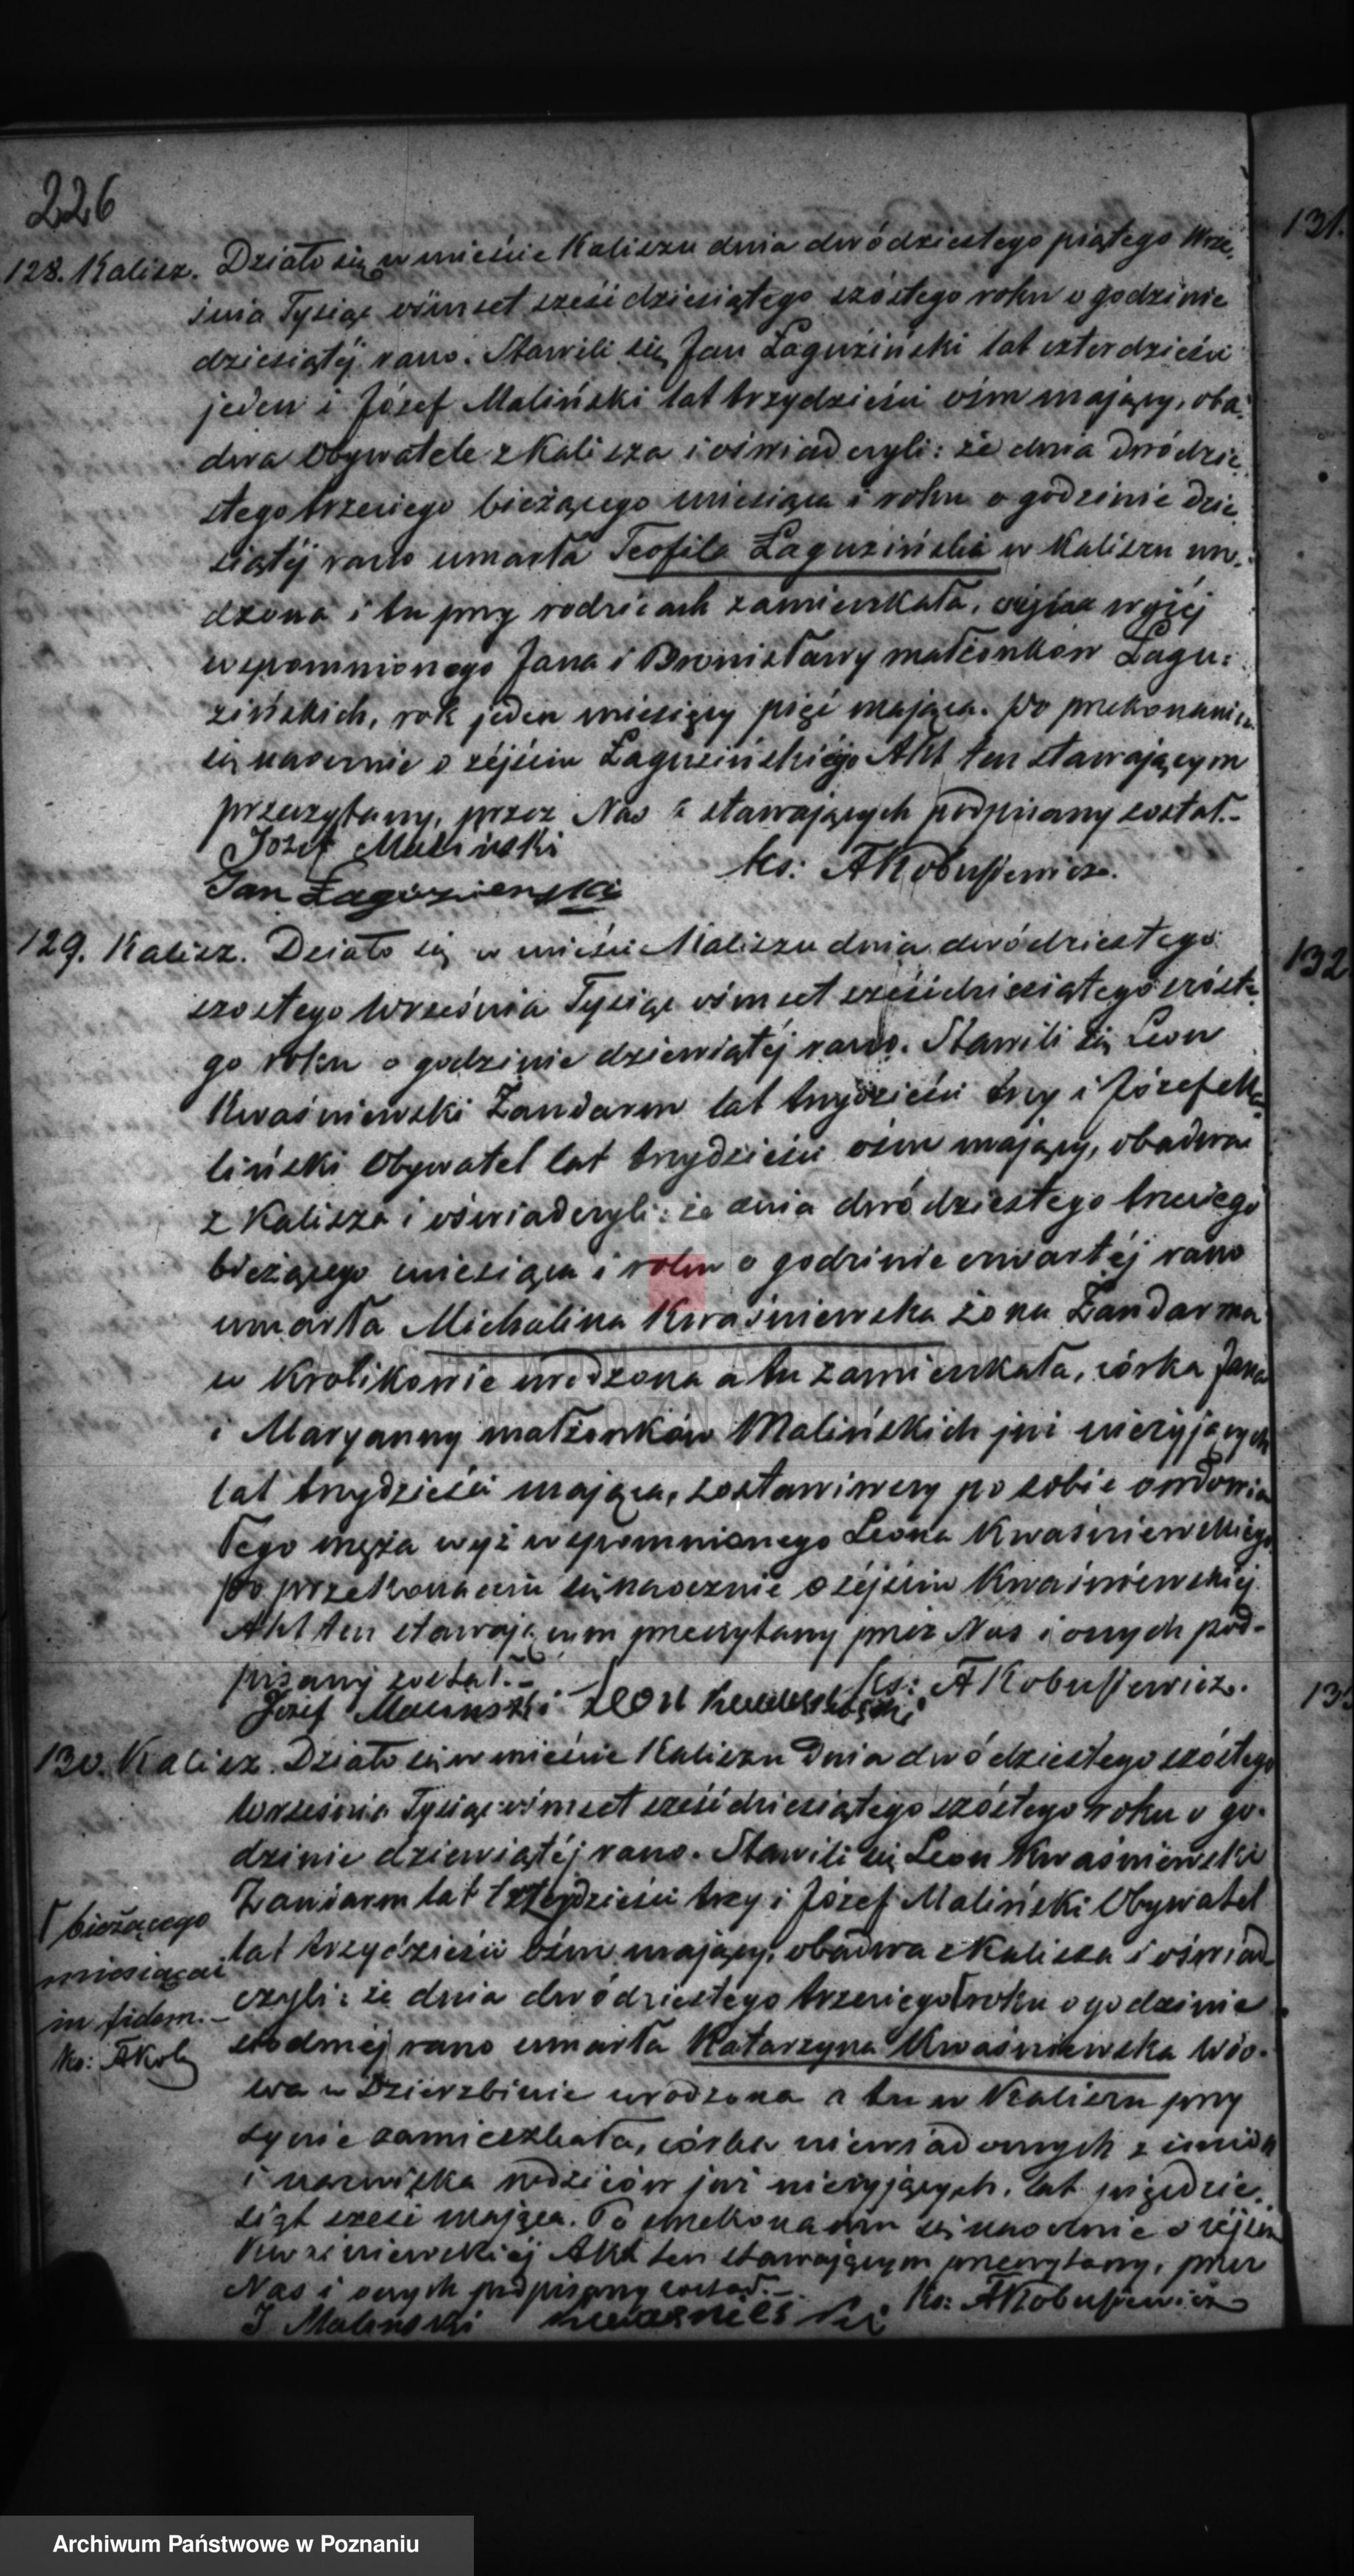 226
128. Kalisz. Działo się w mieście Kaliszu dnia dwódziestego piątego Wrze,
śnia Tysiąc ośmset sześćdziesiątego szóstego roku o godzinie
dziesiątéj rano. Stawili się Jan Łaguziński lat czterdzieści
jeden i Józef Maliński lat trzydzieści ośm mający, oba,
dwa Obywatele z Kalisza i oświadczyli: że dnia dwódzie,
stego trzeciego bieżącego miesiąca i roku o godzinie dzie,
siątéj rano umarła Teofila Łaguzińska w Kaliszu uro,
dzona i tu przy rodzicach zamieszkała, wyżéj
wspomnionego Jana i Bronisławy małżonków Łagu:
zińskich, rok jeden miesięcy pięć mająca. Po przekonaniu
się naocznie o zejściu Łaguzińskiéjgo Akt ten stawającym
przeczytany, przez Nas i stawających podpisany został.-
Józef Maliński
ks: AKobusiewicz.
Jan Łagozienski
129. Kalisz. Działo się w mieście Kaliszu dnia dwódziestego
szostego Września Tysiąc ośmset sześćdziesiątego szóste,
go roku o godzinie dziewiątéj rano. Stawili się Leon
Kwaśniewski Żandarm lat trzydzieści trzy i Józef Ma,
liński Obywatel lat trzydzieści ośm mający, obadwa
z Kalisza i oświadczyli: że dnia dwódziestego trzeciego
bieżącego miesiąca i roku o godzinie czwartéj rano
umarła Michalina Kwaśniewska żona Żandarma
w Krolikowie urodzona a tu zamieszkała, córka Jana
i Maryanny małżonków Malińskich już nieżyjących
lat trzydzieści mająca, zostawiwszy po sobie owdowia
łego męża wyż wspomnionego Leona Kwaśniewskiego
po przekonaniu się naocznie o zejściu Kwaśniewskiéj
Akt ten stawającym przeczytany przez Nas i onych pod-
pisany został.-
ks: AKobusiewicz.
Józef Maliński Leon
130. Kalisz. Działo się w mieście Kaliszu Dnia dwódziestego szóstego
Września Tysiąc ośmset sześćdziesiątego szóstego roku o go-
dzinie dziewiątéj rano. Stawili się Leon Kwaśniewski
Żandarm lat trzy i Józef Maliński Obywatel
lat trzydzieści ośm mający, obadwa z Kalisza i oświad
czyli: że dnia dwódziestego trzeciego roku o godzinie
siódméj rano umarła Katarzyna Kwaśniewska Wdo-
wa w Dzierzbinie urodzona a tu w Kaliszu przy
synie zamieszkała, córka niewiadomych z imion
i nazwiska rodziców już nieżyjących, lat pięćdzie,
siąt sześć mająca. Po przekonaniu się naocznie o zejściu
Kwaśniewskiéj Akt ten stawającym przeczytany, przez
Nas i onych podpisany został.-
ks: AKobusiewicz
J Maliński
bieżącego
miesiąca i
in fidem.-
ks: AKob
131.
132
13
ARCHIWUM PAŃSTWOWE
W POZNANIU
Archiwum Państwowe w Poznaniu